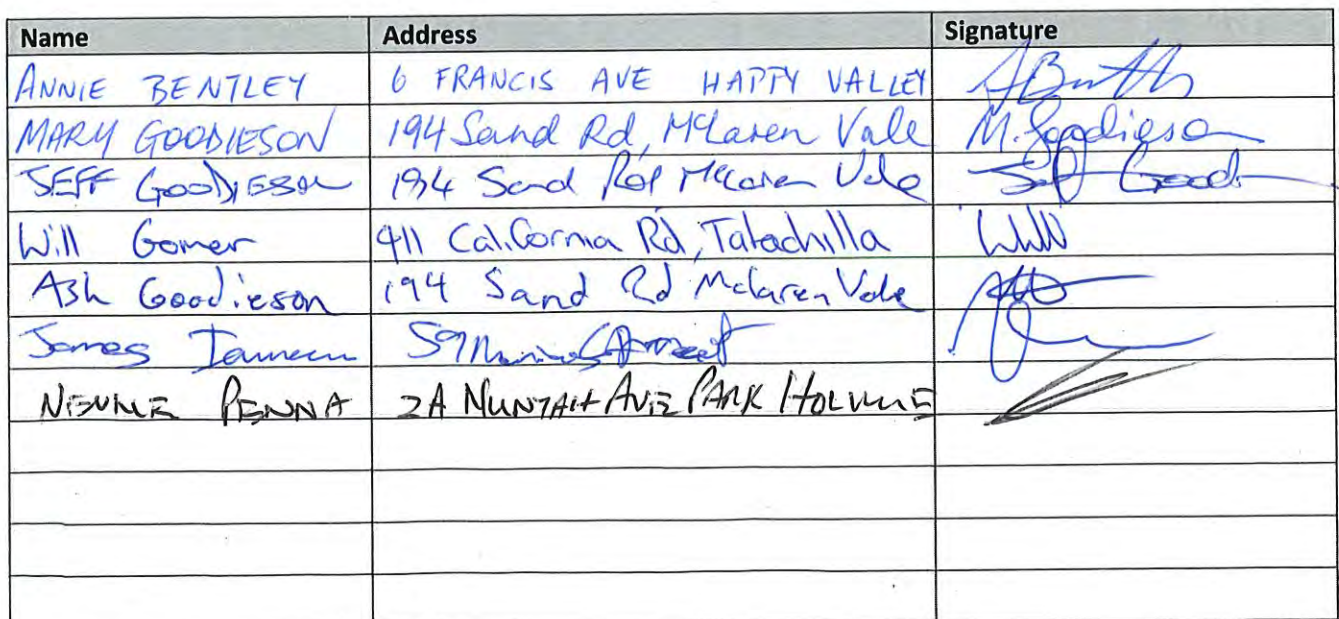 Name Address Signature
ANNIE BENTLEY 6 FRANCIS AVE HAPPY VALLEY
MARY GOODIESON 194 Sand Rd, McLaren Vale M. Goodieson
JEFF GOODIESON 194 Sand Rd McLaren Vale Jeff Good
Will Gomer 411 California Rd, Tatachilla Will
Ash Goodieson 194 Sand Rd McLaren Vale
James 59
NEVILLE PENNA 2A AVE PARK HOLME